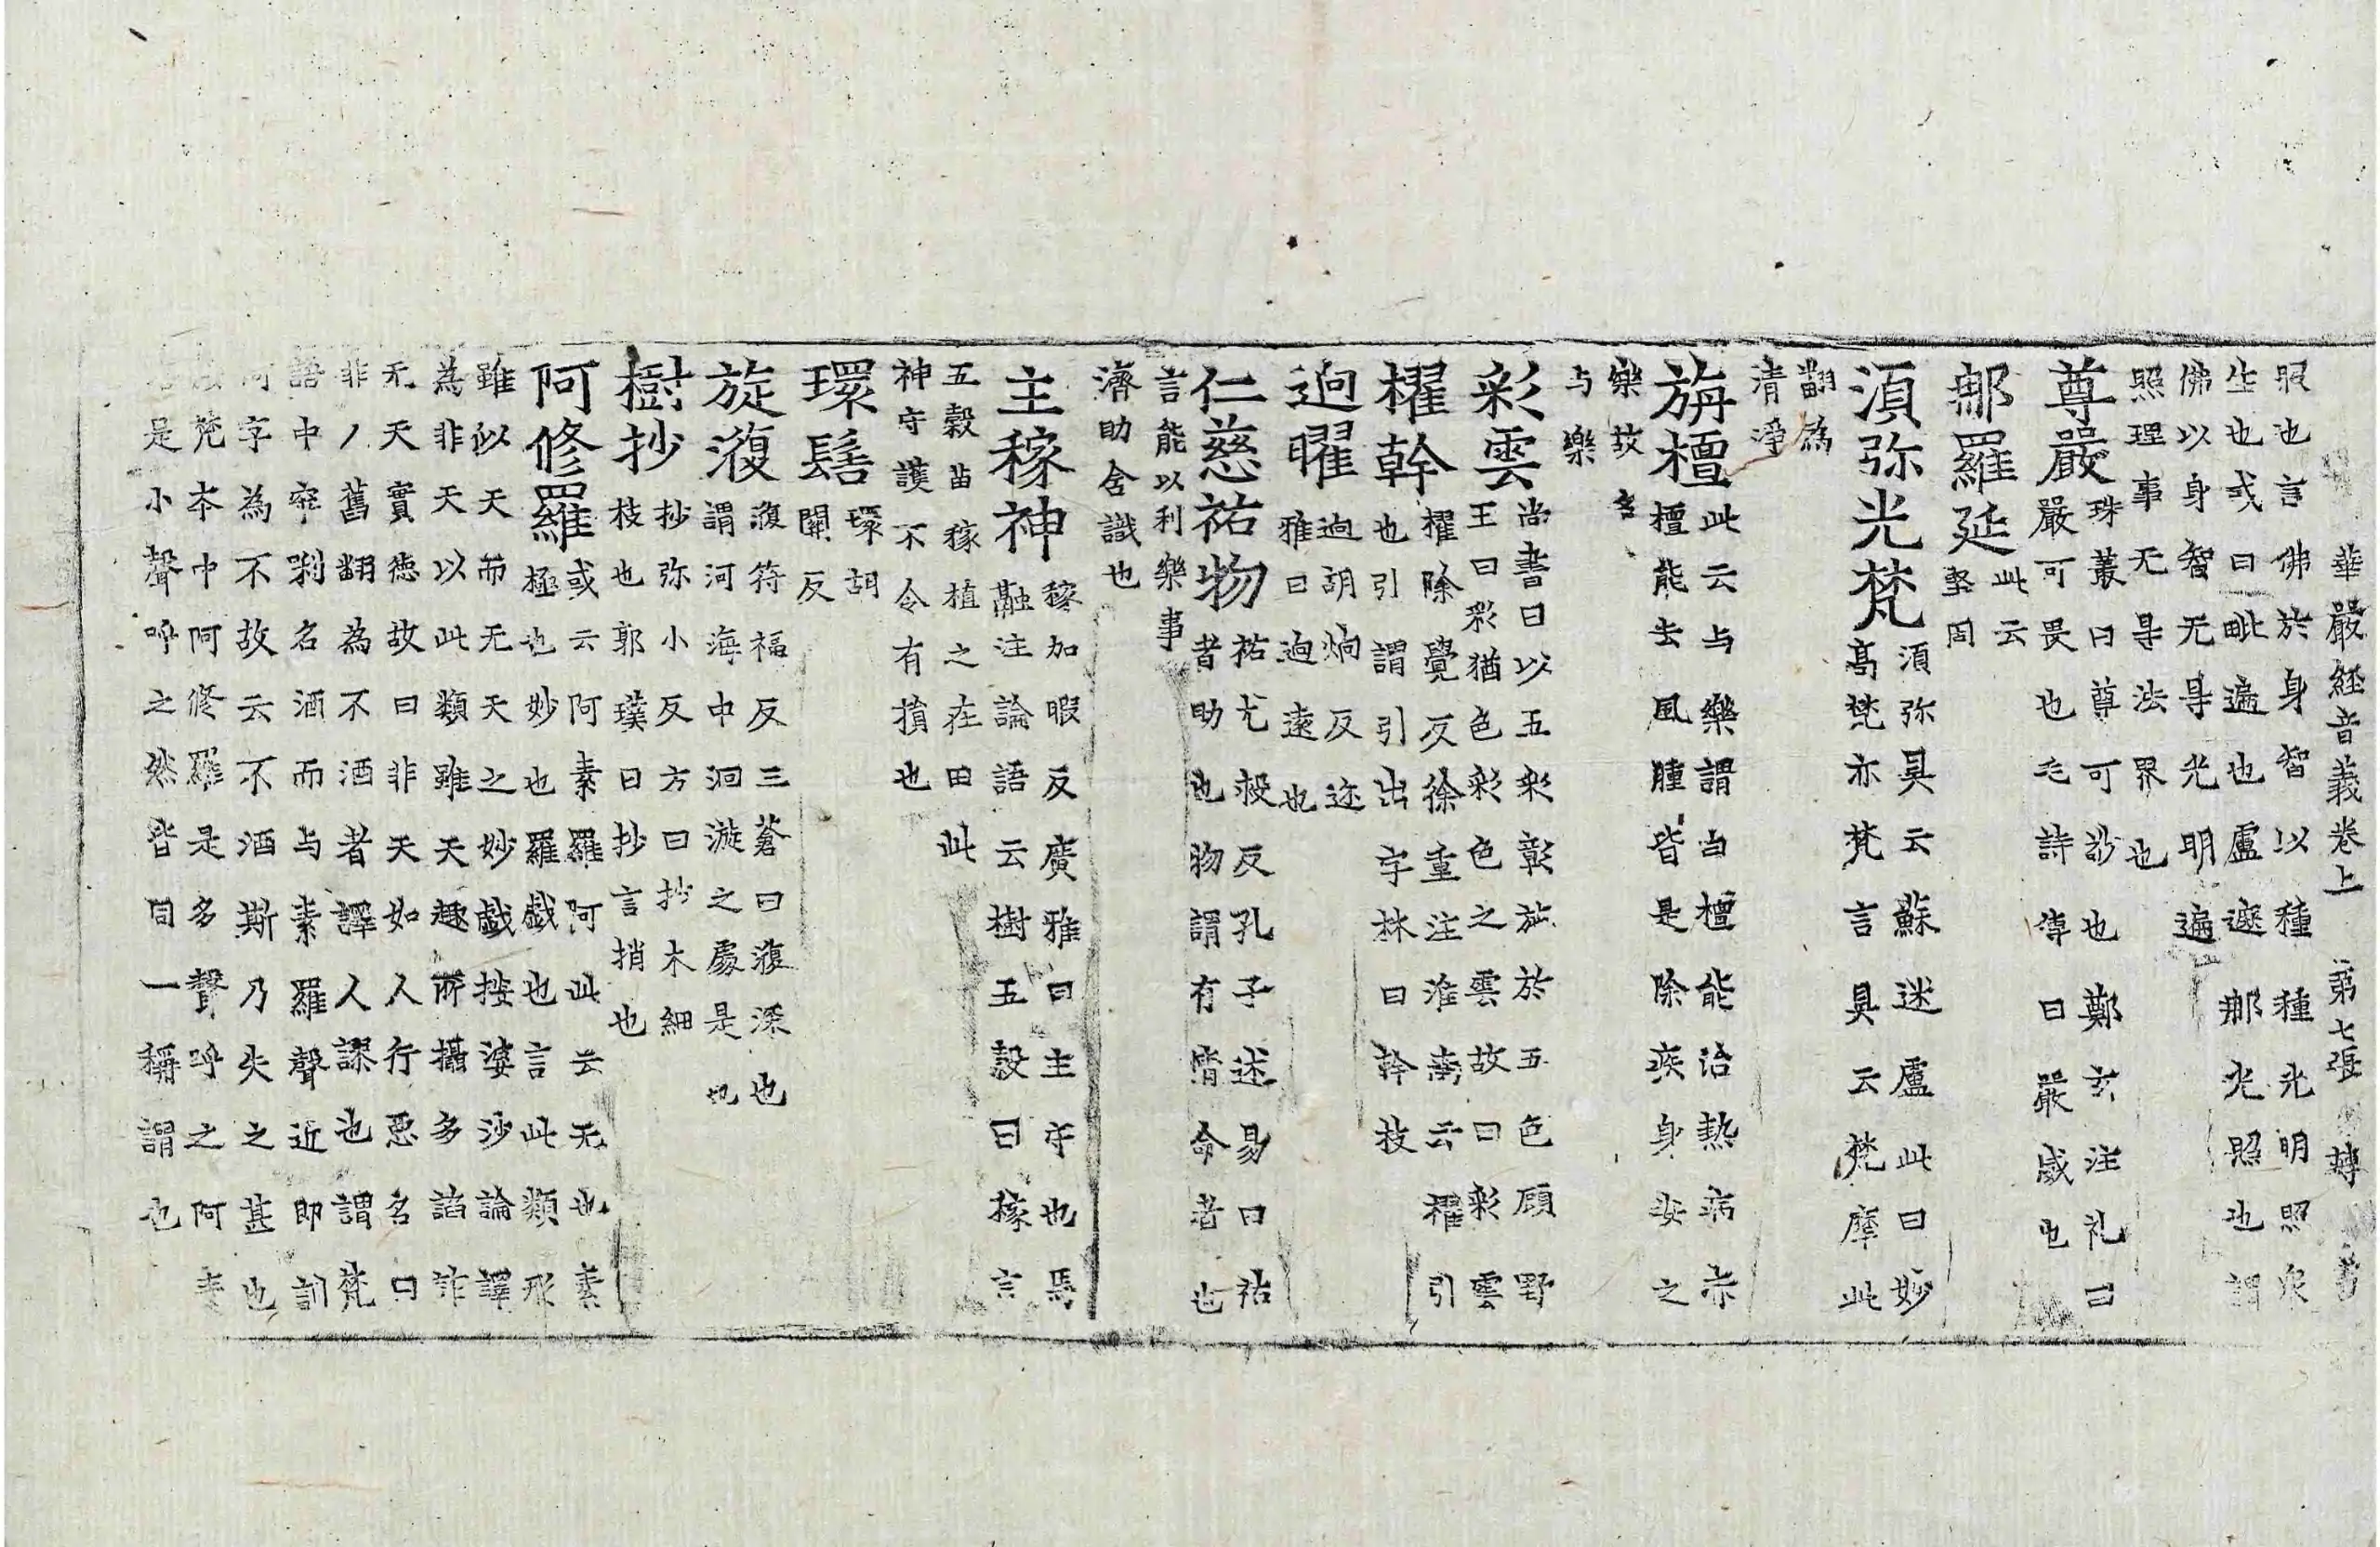 華嚴経音義卷上 第七張
眼也言佛於身智以種種光明照衆
生也或曰毗遍也盧遮那光照也謂
佛以身智无导光明遍
照理事无导法界也
尊嚴
珠叢曰尊可敬也鄭玄注礼曰
嚴可畏也毛詩傳曰嚴威也
那羅延
此云
堅固
湏弥光梵
湏弥具云蘇迷盧此曰妙
高梵亦梵言具云梵摩此
翻為
清淨
旃檀
此云与樂謂白檀能治熱病赤
檀能去風腫皆是除疾身安之
樂故名
与樂
彩雲
尚書曰以五彩彰施於五色顧野
王曰彩猶色彩色之雲故曰彩雲
櫂幹
櫂除覺反徐重注淮南云櫂引
也引謂引出字林曰幹枝
逈曜
逈胡炯反迩
雅曰逈遠也
仁慈祐物
祐尤救反孔子述易曰祐
者助也物謂有情命者也
言能以利樂事
濟助含識也
主稼神
稼加暇反廣雅曰主守也馬
融注論語云樹五穀曰稼言
五穀苗稼植之在田此
神守護不令有損也
環髻
環胡
關反
旋澓
澓符福反三蒼曰澓深也
謂河海中洄漩之處是也
樹抄
抄弥小反方曰抄木細
枝也郭璞曰抄言梢也
阿修羅
或云阿素羅阿此云无也素
極也妙也羅戲也言此類形
雖似天而无天之妙戲按婆沙論譯
為非天以此類雖天趣所攝多諂詐
无天實徳故曰非天如人行惡名曰
非人舊翻為不酒者譯人謬也謂梵
語中窣剌名酒而与素羅聲近即訓
阿字為不故云不酒斯乃失之甚也
梵夲中阿修羅是多聲呼之阿素
是小聲呼之然皆同一稱謂也